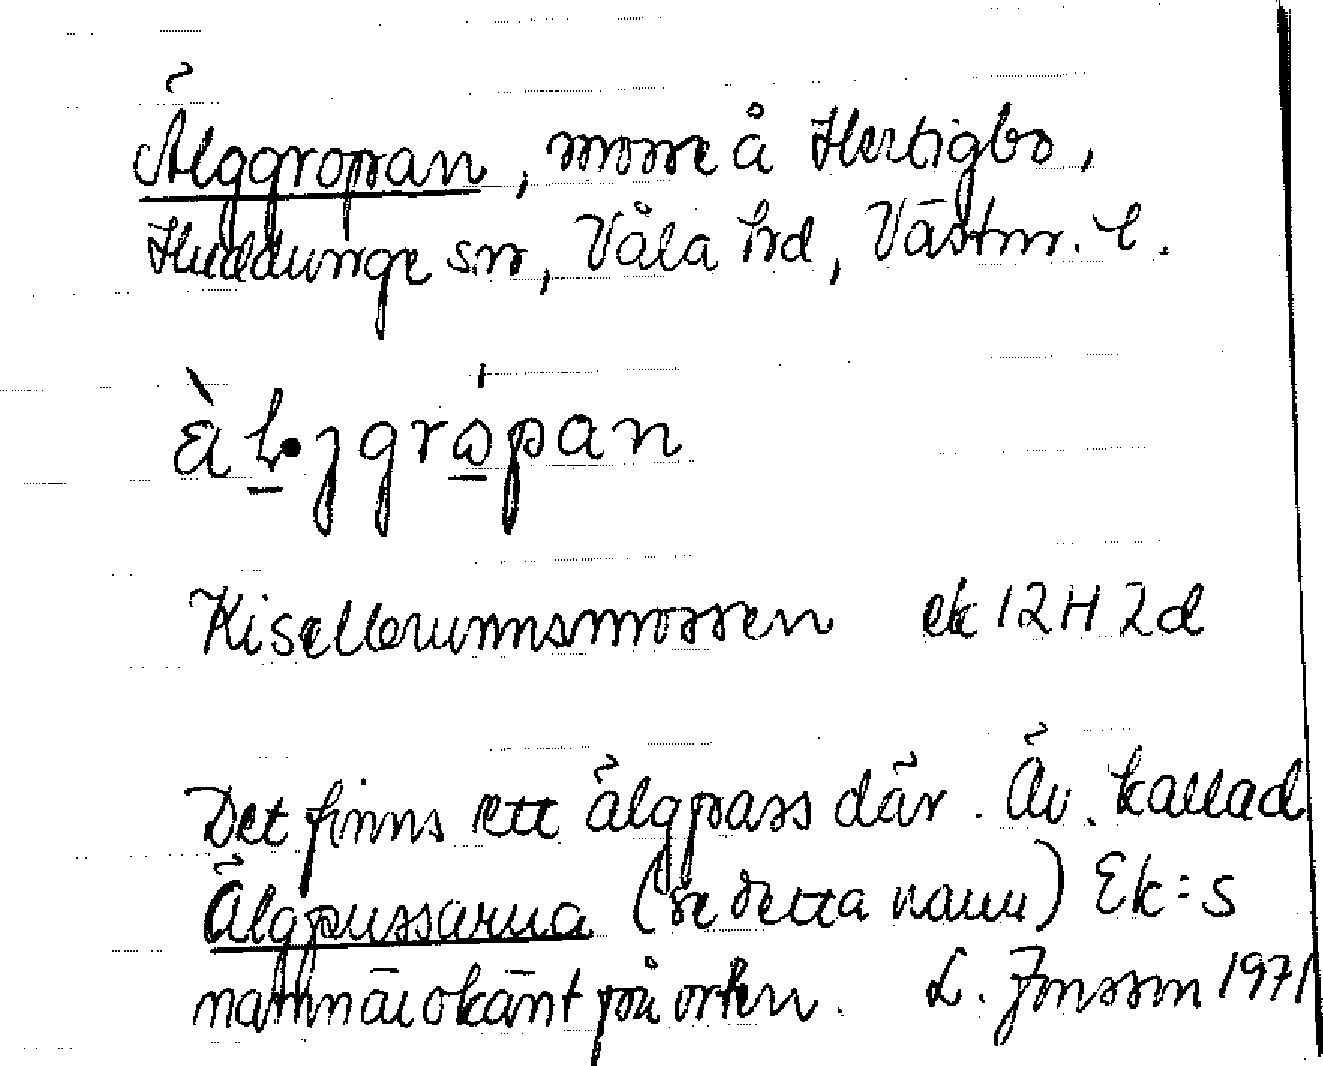 Älggropan, mosse å Hertigbo,
Huddunge sn, Våla hd, Västm. l.
ä̀ljgrópan
Kisellbrunnsmossen ek 12H 2d
Det finns ett älgpass där. Äv. kallad
Älgpussarna (se detta namn) Ek:s
namn är okänt på orten. L. Jonsson 1971